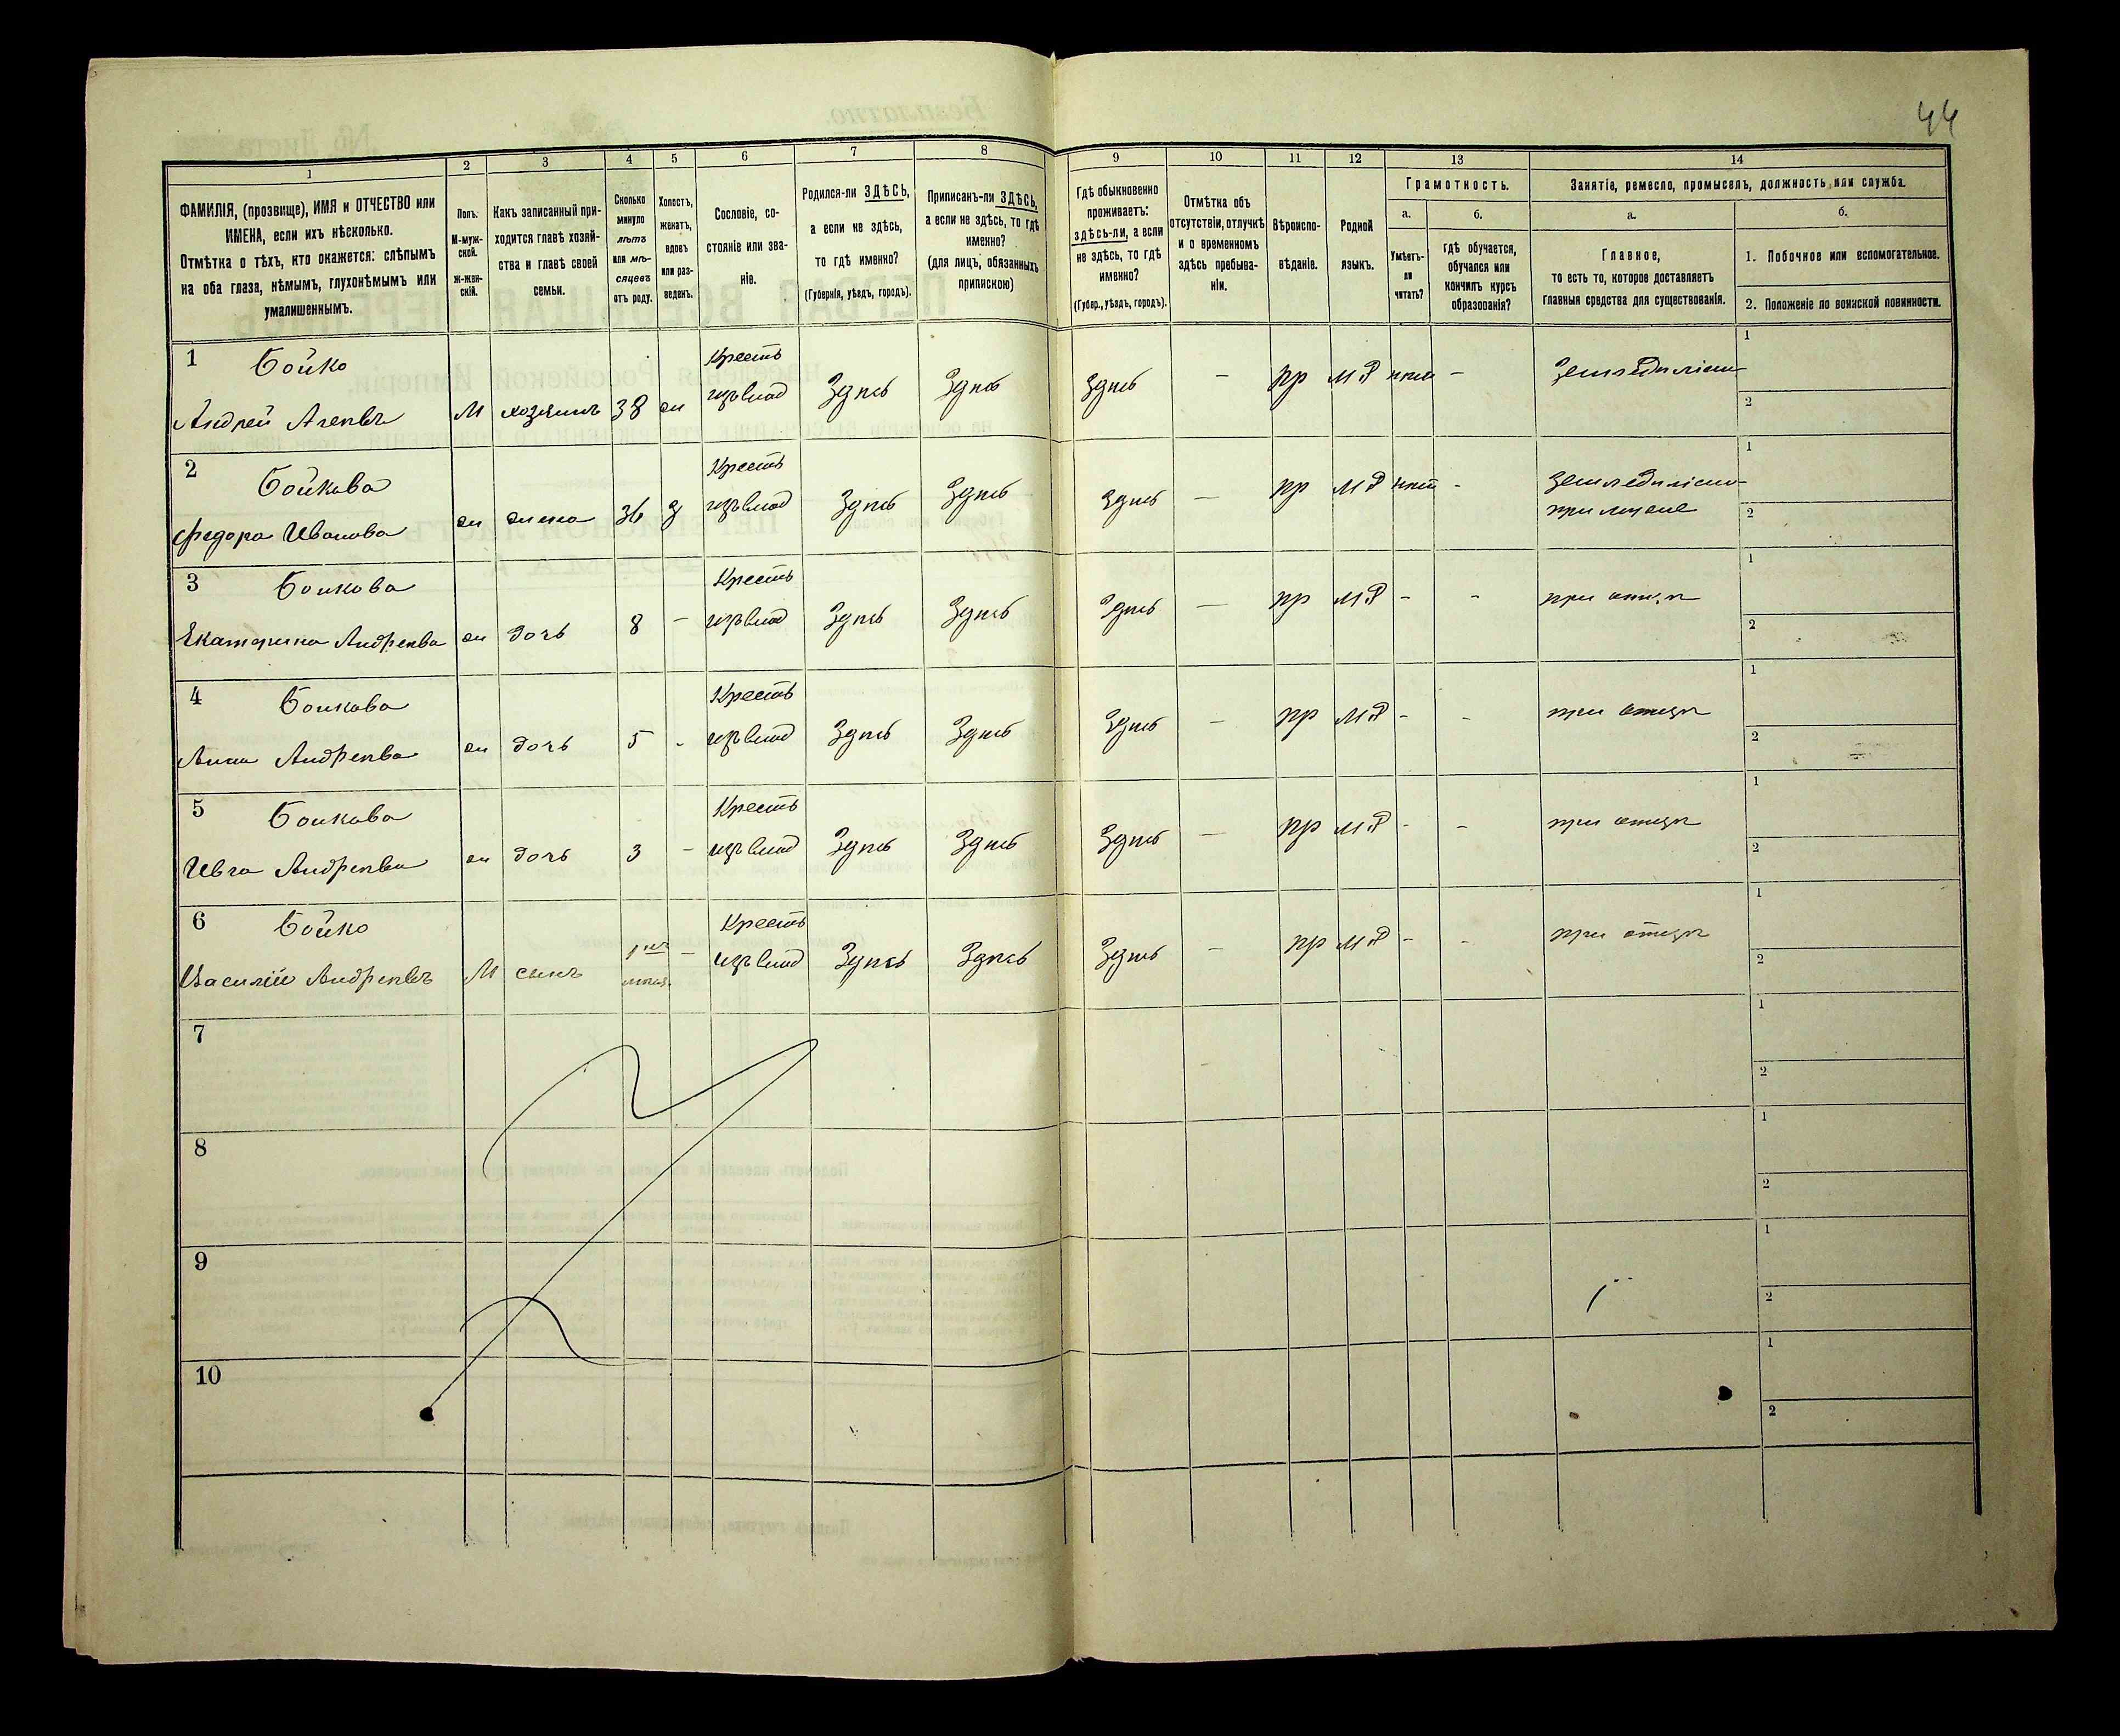 44
1 2 3 4 5 6 7 8 9 10 11 12 13 14
ФАМИЛІЯ, (прозвище), ИМЯ и ОТЧЕСТВО или
ИМЕНА, если ихъ нѣсколько.
Отмѣтка о тѣхъ, кто окажется: слѣпымъ
на оба глаза, нѣмымъ, глухонѣмымъ или
умалишеннымъ.
Полъ.
М-муж-
ской.
Ж-жен-
скій.
Какъ записанный при-
ходится главѣ хозяй-
ства и главѣ своей
семьи.
Сколько
минуло
лѣтъ
или мѣ-
сяцевъ
отъ роду.
Холостъ,
женатъ,
вдовъ
или раз-
веденъ.
Сословіе, со-
стояніе или зва-
ніе.
Родился-ли ЗДѢСЬ,
а если не здѣсь,
то гдѣ именно?
(Губернія, уѣздъ, городъ).
Приписанъ-ли ЗДѢСЬ,
а если не здѣсь, то гдѣ
именно?
(для лицъ, обязанныхъ
припискою)
Гдѣ обыкновенно
проживаетъ:
здѣсь-ли, а если
не здѣсь, то гдѣ
именно?
(Губер., уѣздъ, городъ).
Отмѣтка объ
отсутствіи, отлучкѣ
и о временномъ
здѣсь пребыва-
ніи.
Вѣроиспо-
вѣданіе.
Родной
языкъ.
Грамотность.
а.
Умѣетъ-
ли
читать?
б.
гдѣ обучается,
обучался или
кончилъ курсъ
образованія?
Занятіе, ремесло, промыселъ, должность или служба.
а.
Главное,
то есть то, которое доставляетъ
главныя средства для существованія.
б.
1. Побочное или вспомогательное.
2. Положеніе по воинской повинности.
1 Бойко Кресть 1
Андрей М хозяинъ 38 ж Здѣсь Здѣсь Здѣсь — пр МР нѣт — 2
2 Бойкова Кресть 1
Федора Иванова ж жена 36 З Здѣсь Здѣсь Здѣсь — пр МР нѣт - при муже 2
3 Боикова Кресть 1
Екатерина Андреѣва ж дочь 8 — Здѣсь Здѣсь Здѣсь — пр МР - - при отцѣ 2
4 Боикова Кресть 1
Анна Андреѣва ж дочь 5 - Здѣсь Здѣсь Здѣсь — пр МР - - при отцѣ 2
5 Боикова Кресть 1
Ивга Андреѣва ж дочь 3 — Здѣсь Здѣсь Здѣсь — пр МР - - при отцѣ 2
6 Бойко Кресть 1
Василій Андреѣвъ М сынъ — Здѣсь Здѣсь Здѣсь — пр МР - - при отцѣ 2
7 1
2
8 1
2
9 1
2
10 1
2